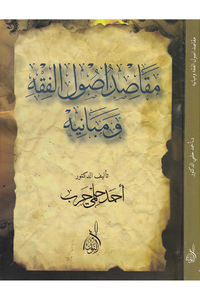 مقاصد أصول الفقه
ومبانيه
تأليف الدكتور
أحمد حلمي حرب
مقاصد أصول الفقه ومبانيه